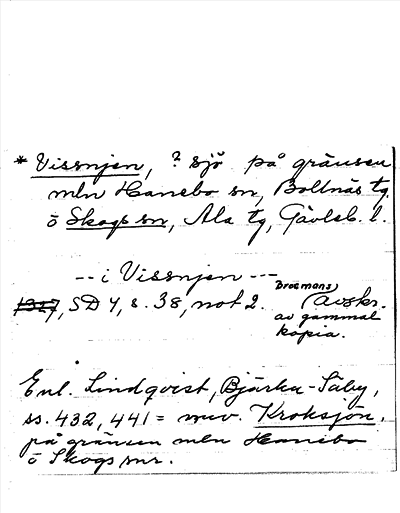 * Vissnjen, ? sjö på gränsen
mln Hanebo sn, Bollnäs tg.
ö Skogs sn, Ala tg, Gävleb. l.
-- i Vissnjen ---
1327, SD 4, s. 38, not 2. Brocmans (avskr.
av gammal
kopia.
Enl. Lindqvist, Bjärka-Säby,
ss. 432, 441 = nuv. Kroksjön,
på gränsen mln Hanebo
ö Skogs snr.